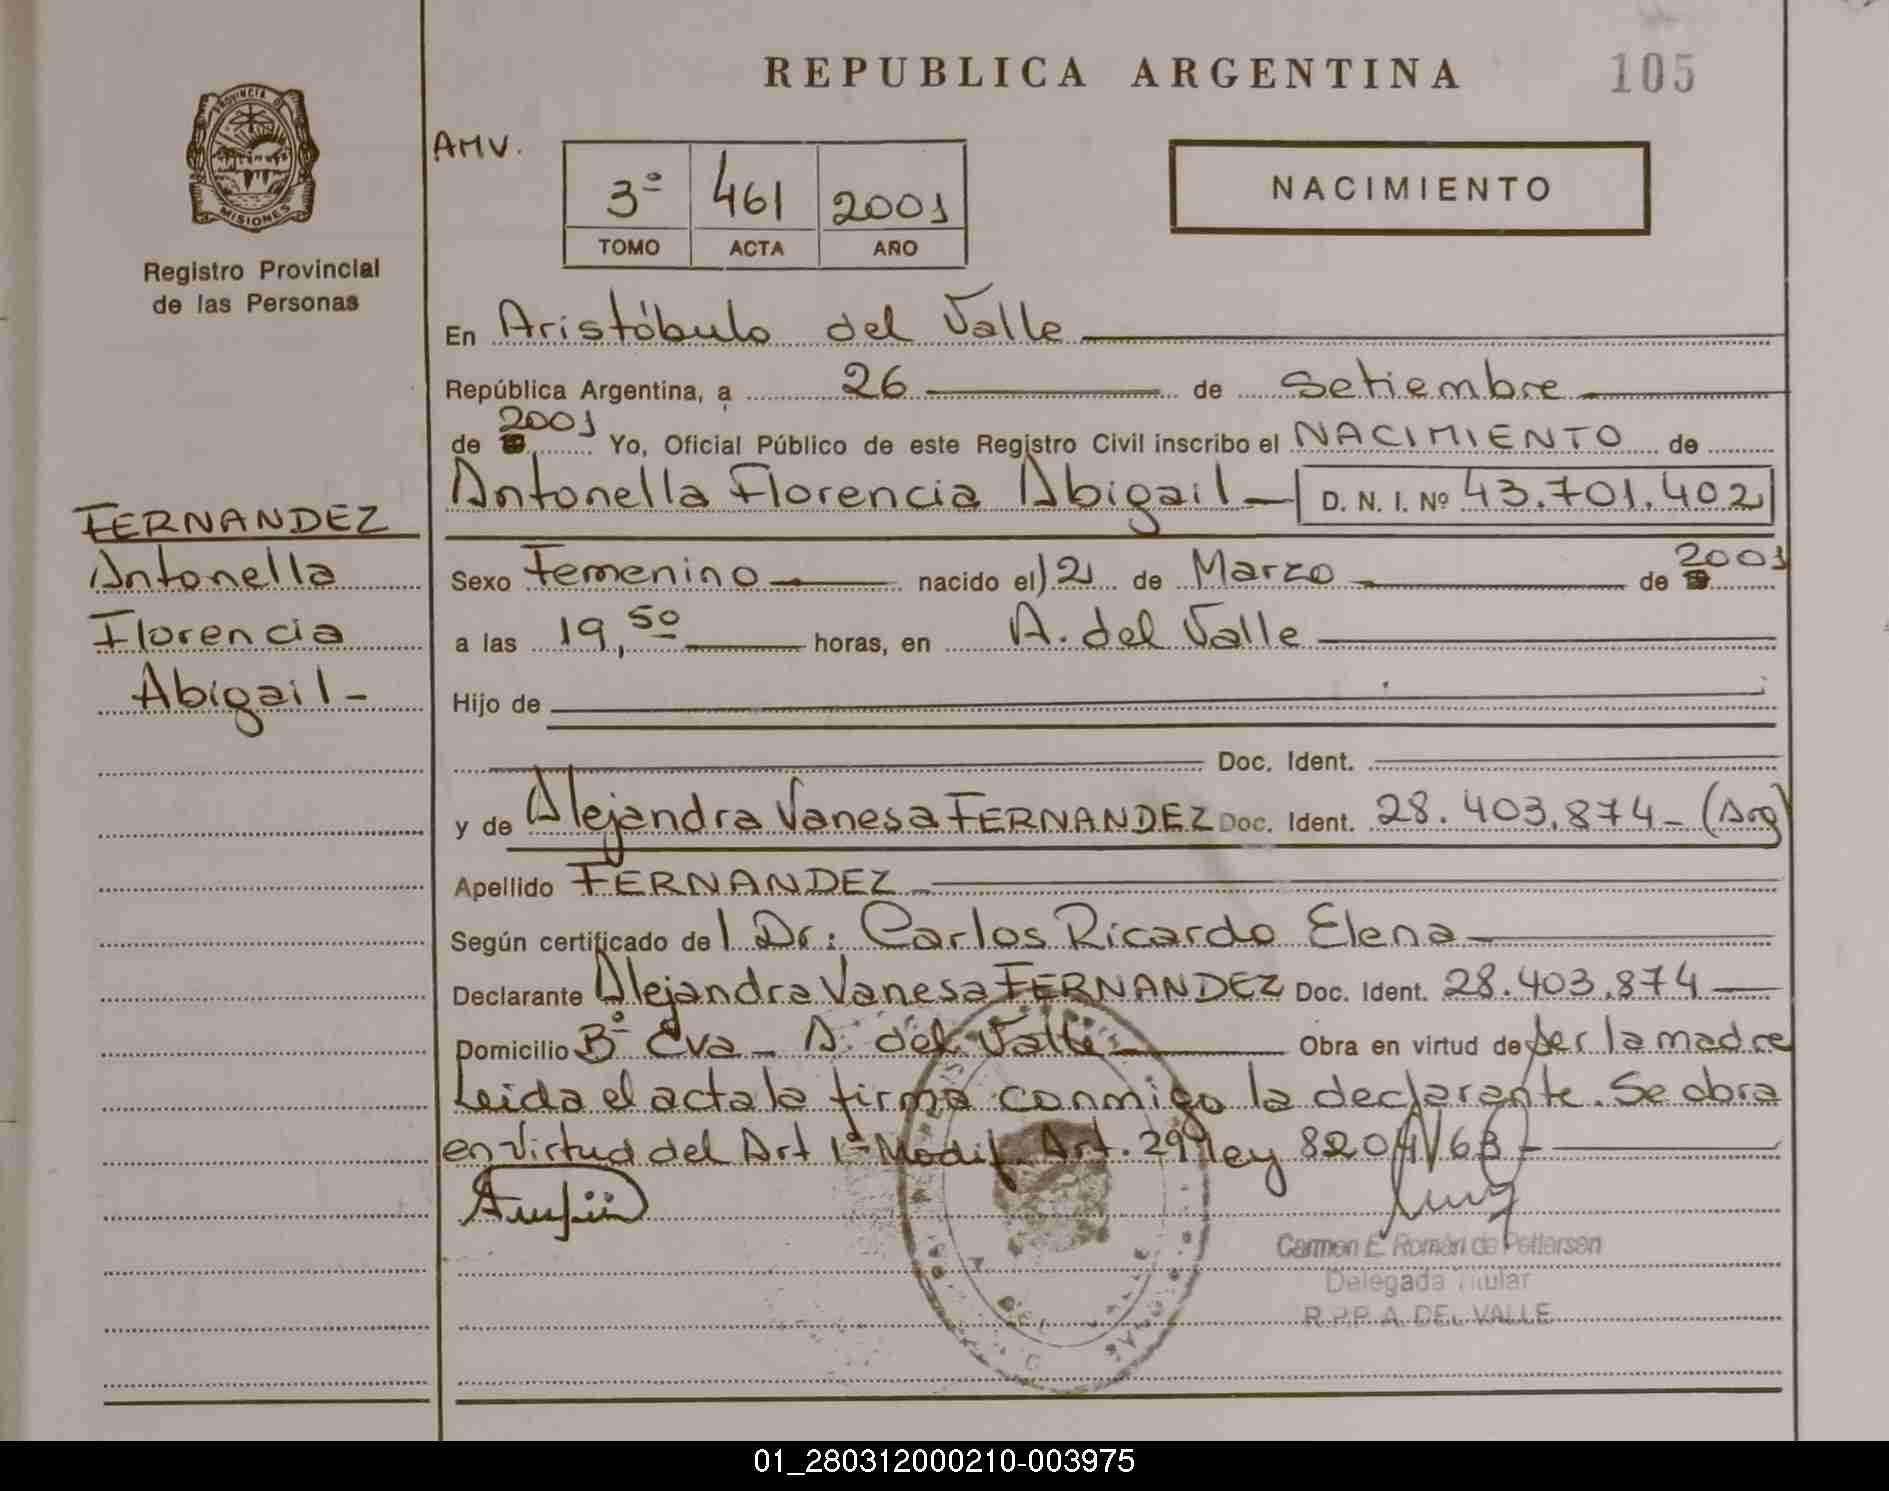 REPUBLICA ARGENTINA
105
PROVINCIA DE
MISIONES
Registro Provincial
de las Personas
AMV.
3º 461 2001
TOMO ACTA AÑO
NACIMIENTO
En Aristóbulo del Valle
República Argentina, a 26 de Setiembre
de 2001 Yo, Oficial Público de este Registro Civil inscribo el NACIMIENTO de
Antonella Florencia Abigail - D. N. I. Nº 43.701.402
FERNANDEZ
Antonella
Florencia
Abigail -
Sexo Femenino nacido el 21 de Marzo de 2001
a las 19,50 horas, en A. del Valle
Hijo de
Doc. Ident.
y de Alejandra Vanesa FERNANDEZ Doc. Ident. 28.403.874 - (Arg)
Apellido FERNANDEZ
Según certificado del Dr: Carlos Ricardo Elena
Declarante Alejandra Vanesa FERNANDEZ Doc. Ident. 28.403.874
Domicilio Bº Eva - A. del Valle Obra en virtud de ser la madre
Leida el acta la firma conmigo la declarante. Se obra
en virtud del Art 1º Modif. Art. 29 ley 8204/63 -
Carmen E. Román de Pettersen
Delegada Titular
R.P.P. A. DEL VALLE
01_280312000210-003975